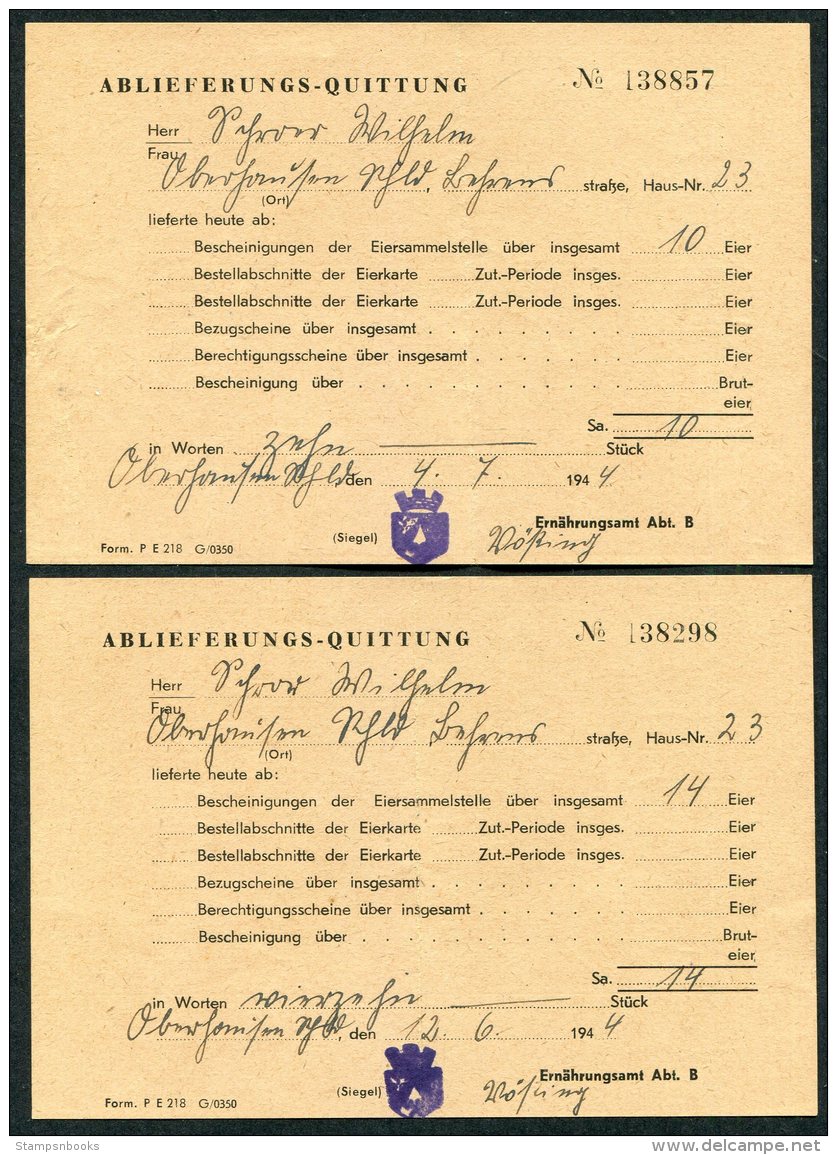 ABLIEFERUNGS-QUITTUNG № 138857
Herr Schroer Wilhelm
Frau
Oberhausen Rhld. Behrens straße, Haus-Nr. 23
(Ort)
lieferte heute ab:
Bescheinigungen der Eiersammelstelle über insgesamt 10 Eier
Bestellabschnitte der Eierkarte Zut.-Periode insges. Eier
Bestellabschnitte der Eierkarte Zut.-Periode insges. Eier
Bezugscheine über insgesamt . . . . . . . . . Eier
Berechtigungsscheine über insgesamt . . . . . . . Eier
Bescheinigung über . . . . . . . . . . . Brut-
eier
Sa. 10
in Worten zehn Stück
Oberhausen Rhld den 4. 7. 1944
(Siegel) Ernährungsamt Abt. B
Form. P E 218 G/0350 Vößing
ABLIEFERUNGS-QUITTUNG № 138298
Herr Schroer Wilhelm
Frau
Oberhausen Rhld Behrens straße, Haus-Nr. 23
(Ort)
lieferte heute ab:
Bescheinigungen der Eiersammelstelle über insgesamt 14 Eier
Bestellabschnitte der Eierkarte Zut.-Periode insges. Eier
Bestellabschnitte der Eierkarte Zut.-Periode insges. Eier
Bezugscheine über insgesamt . . . . . . . . . Eier
Berechtigungsscheine über insgesamt . . . . . . . Eier
Bescheinigung über . . . . . . . . . . . Brut-
eier
Sa. 14
in Worten vierzehn Stück
Oberhausen Rhld, den 12. 6. 1944
(Siegel) Ernährungsamt Abt. B
Form. P E 218 G/0350 Vößing
Stampsnbooks